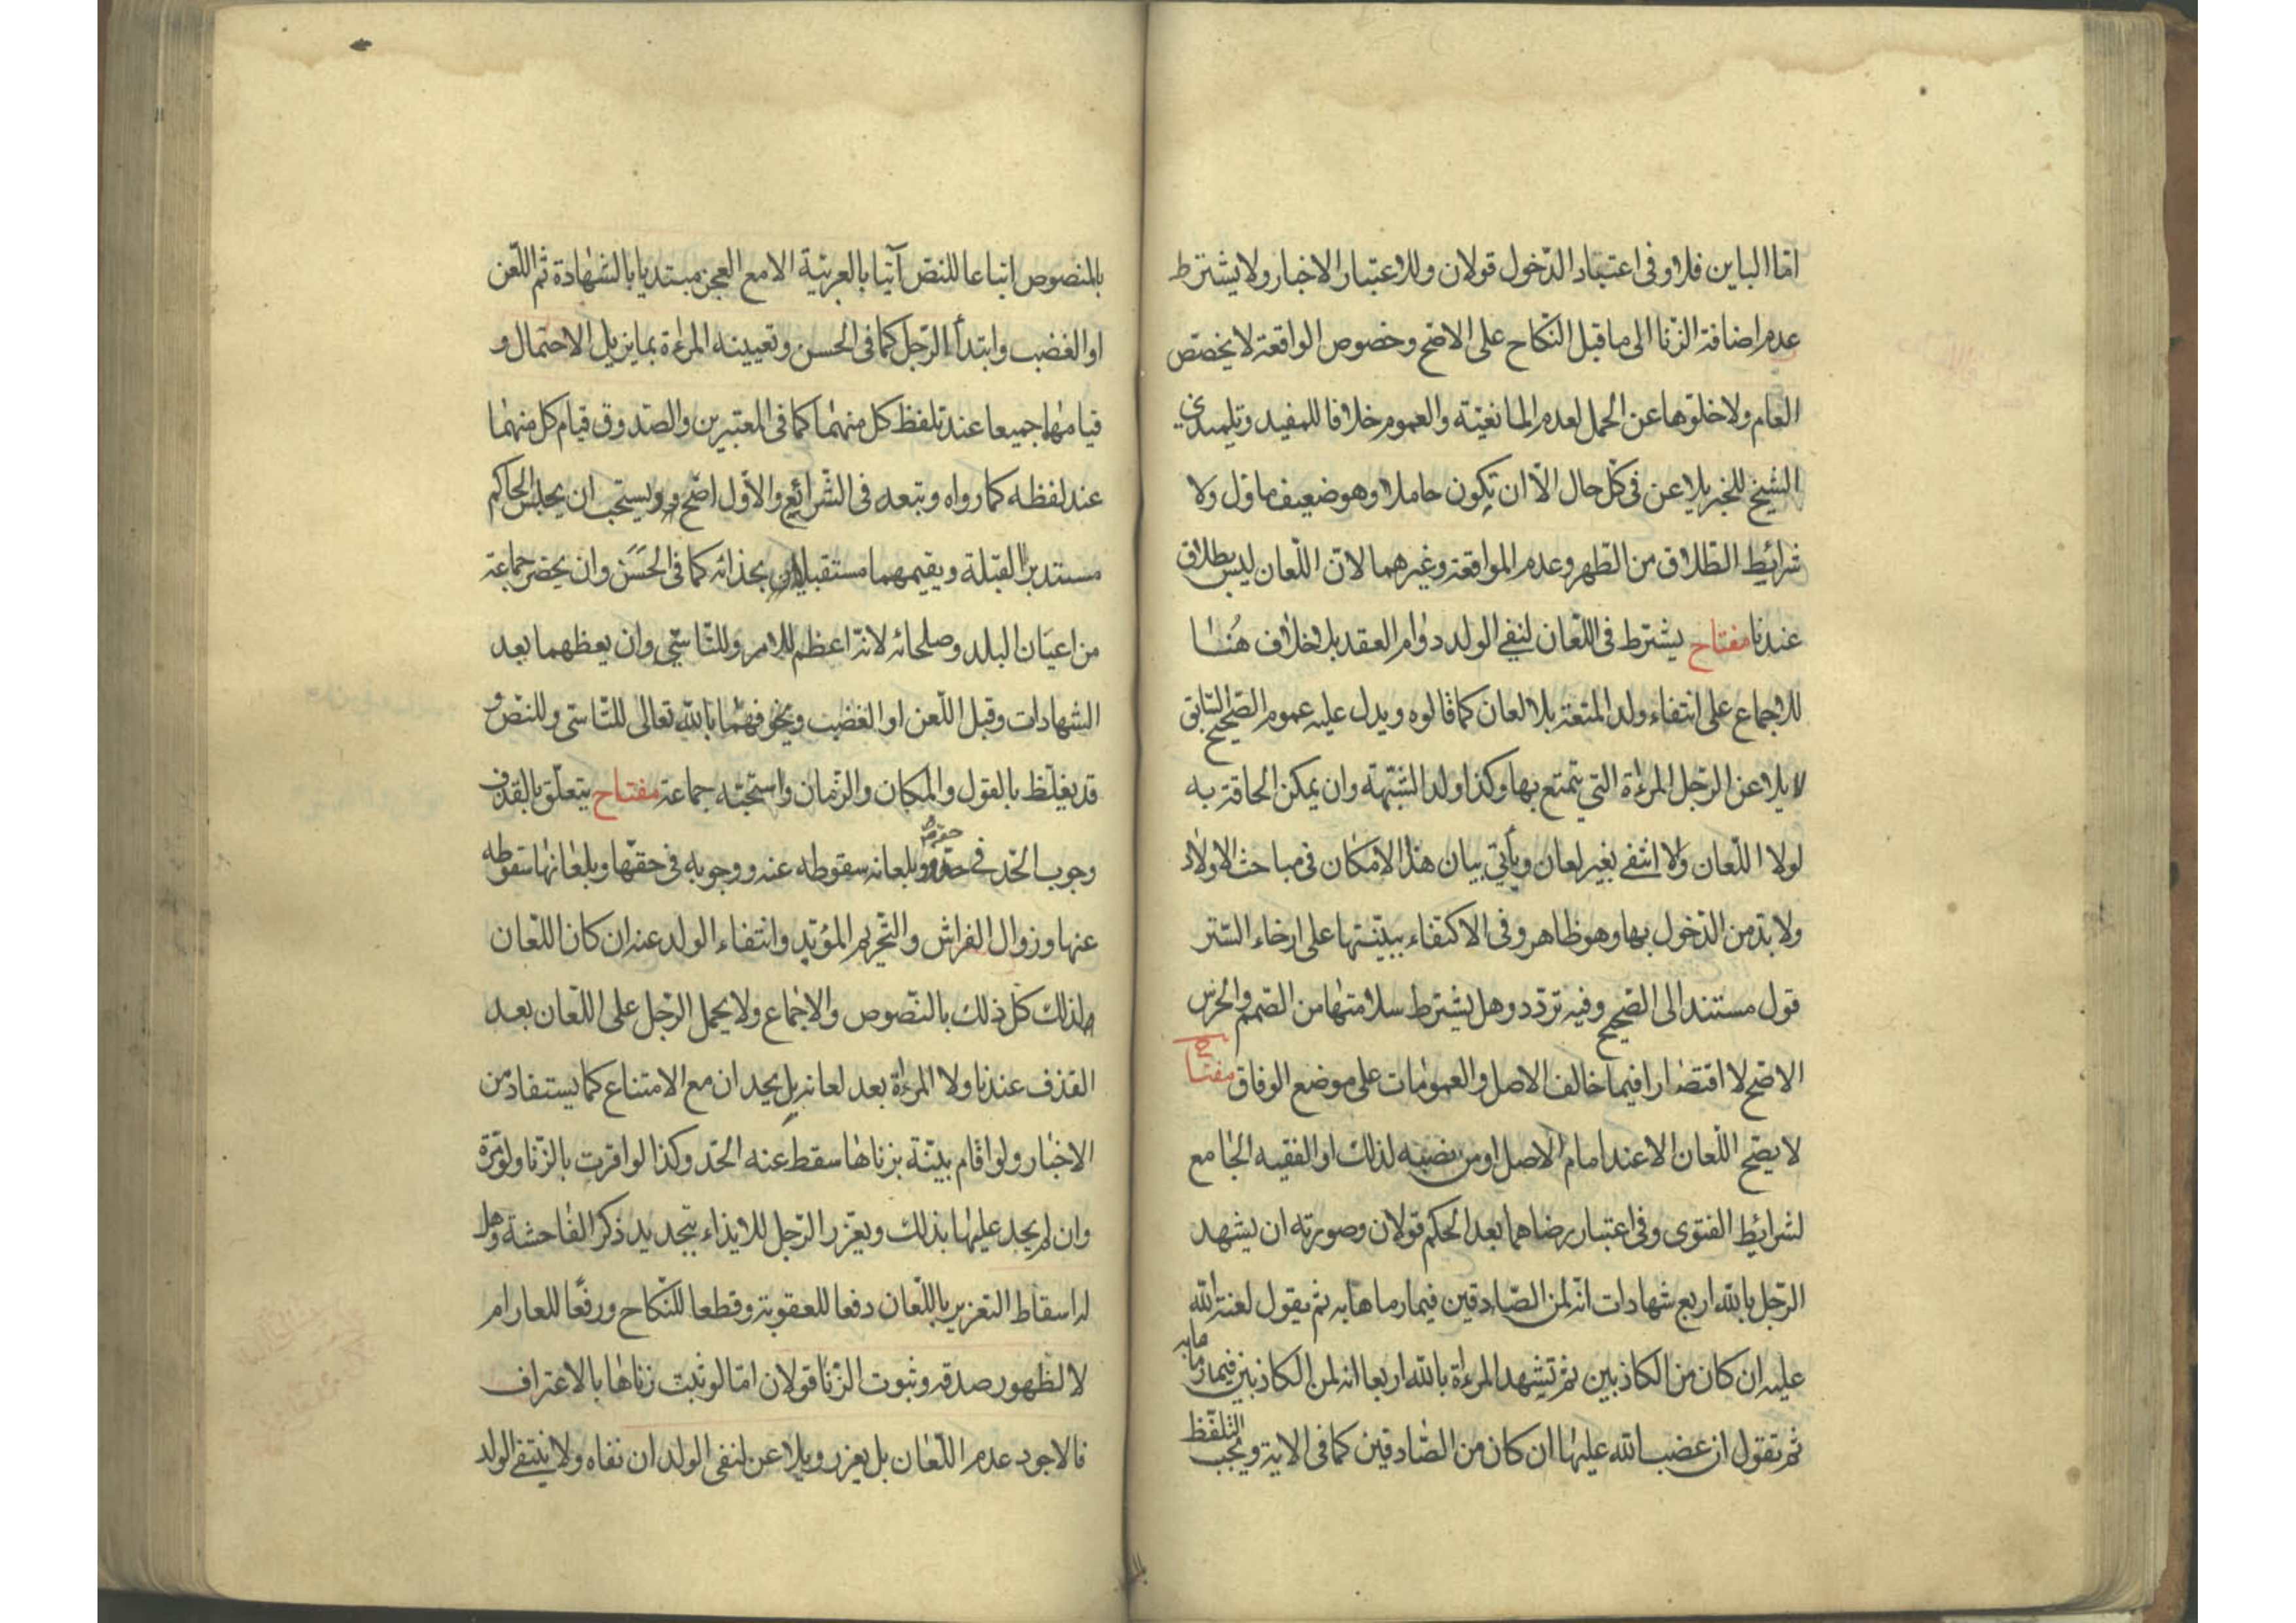 اما الباين فلا وفى اعتبار الدّخول قولان وللاعتبار الاخبار ولا يشترط
عدم اضافة الزنا الى ما قبل النّكاح على الاصّح وخصوص الواقعة لا يخصّص
العام ولا خلوّها عن الحمل لعدم المانغيّته والعموم خلافا للمفيد وتلميذى
الشيخ للخبر يلاعن فى كلّ حال الّا ان تكون حاملا وهو ضعيف ماوّل ولا
شرائيط الطّلاق من الطّهر وعدم المواقعة وغيرهما لانّ اللّعان ليس بطلاق
عندنا مفتاح يشترط فى اللّعان لنفى الولد دوام العقد بلا خلاف هُنا
للاجماع على انتفاء ولد المتعة بلا لعان كما قالوه ويدل عليه عموم الصّحيح السّابق
لا يلاعن الرّجل المرءة التي يتمتع بها وكذا ولد الشّبهة وان يمكن الحاقه به
لولا اللّعان ولا انتفى بغير لعان ويأتي بيان هذا الامكان فى مباحث الاولاد
ولا بدّ من الدّخول بها وهو ظاهر وفى الاكتفاء ببيّنتها على ارخاء السّتر
قول مستند الى الصّحيح وفيه تردّد وهل يشترط سلامتها من الصّمم والخرس
الاصّح لا اقتصارا فيما خالف الاصل والعمومات على موضع الوفاق مفتاح
لا يصّح اللّعان الا عند امام الاصل او من نصبه لذلك او الفقيه الجامع
لشرائيط الفتوى وفى اعتبار رضاهما بعد الحكم قولان وصورته ان يشهد
الرّجل باللّه اربع شهادات انّه لمن الصّادقين فيما رماها به ثم يقول لعنة اللّه
عليه ان كان من الكاذبين ثم تشهد المرءة باللّه اربعا انه لمن الكاذبين فيما رماها به
ثم تقول ان غضب اللّه عليها ان كان من الصّادقين كما فى الاية ويجب التلفّظ
بالمنصوص اتباعا للنصّ آتيا بالعربيّة الا مع العجز مبتديا بالشهادة ثم اللّعن
او الغضب وابتدأ الرّجل كما فى الحسن وتعيينه المرءة بما يزيل الاحتمال و
قيامهما جميعا عند تلفظ كل منهما كما فى المعتبرين والصّدوق قيام كل منهما
عند لفظه كما رواه وتبعه فى الشّرائع والاوّل اصّح ويستحب ان يجلس الحاكم
مستدبر القبلة ويقيمهما مستقبلين بحذائه كما فى الحَسَن وان يحضر جماعة
من اعيَان البلد وصلحائه لانّه اعظم للامر وللتّاسّي وان يعظهما بعد
الشهادات وقبل اللّعن او الغضب ويخوفهما باللّه تعالى للتّاسّى وللنّصّ و
قد يغلّظ بالقول والمكان والزّمان واستحبّه جماعة مفتاح يتعلّق بالقذف
وجوب الحّد فى حقّه وبلعانه سقوطه عنه ووجوبه فى حقّها وبلعانها سقوطه
عنها وزوال الفراش والتّحريم المؤبّد وانتفاء الولد عنه ان كان اللّعان
لذلك كلّ ذلك بالنّصوص والاجماع ولا يحمل الرّجل على اللّعان بعد
القذف عندنا ولا المرءة بعد لعانه بل يحدان مع الامتناع كما يستفاد من
الاخبار ولو اقام بيّنة بزناها سقط عنه الحّد وكذا لو اقرت بالزّنا ولو مّرة
وان لم يجد عليها بذلك ويعّزر الرّجل للايذاء بتجديد ذكر الفاحشة وهل
له اسقاط التعزير باللّعان دفعا للعقوبة وقطعا للنّكاح ورفعًا للعار ام
لا لظهور صدقه وثبوت الزّنا قولان امّا لو ثبت زناها بالاعتراف
فالاجود عدم اللّعان بل يعزر ويلاعن لنفى الولد ان نفاه ولا ينتفى الولد